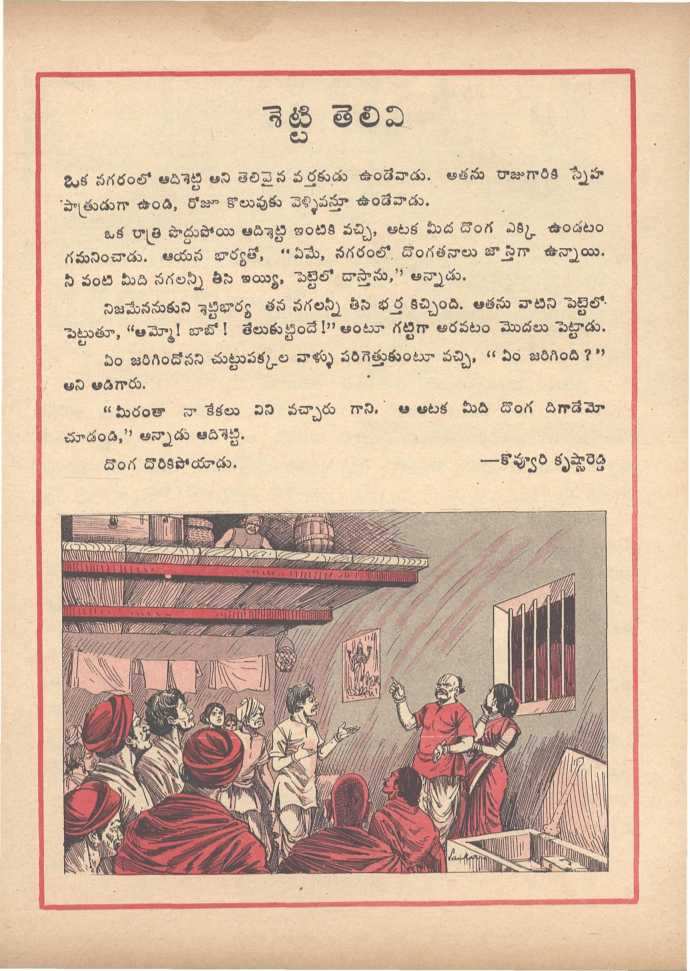 శెట్టి తెలివి
ఒక నగరంలో ఆదిశెట్టి అని తెలివైన వర్తకుడు ఉండేవాడు. అతను రాజుగారికి స్నేహ
పాత్రుడుగా ఉండి, రోజూ కొలువుకు వెళ్ళివస్తూ ఉండేవాడు.
ఒక రాత్రి పొద్దుపోయి ఆదిశెట్టి ఇంటికి వచ్చి, అటక మీద దొంగ ఎక్కి ఉండటం
గమనించాడు. ఆయన భార్యతో, "ఏమే, నగరంలో దొంగతనాలు జాస్తిగా ఉన్నాయి.
నీ వంటి మీది నగలన్నీ తీసి ఇయ్యి, పెట్టెలో దాస్తాను," అన్నాడు.
నిజమేననుకుని శెట్టిభార్య తన నగలన్నీ తీసి భర్త కిచ్చింది. అతను వాటిని పెట్టెలో
పెట్టుతూ, "అమ్మో! బాబో! తేలుకుట్టిందే!" అంటూ గట్టిగా అరవటం మొదలు పెట్టాడు.
ఏం జరిగిందోనని చుట్టుపక్కల వాళ్ళు పరిగెత్తుకుంటూ వచ్చి, "ఏం జరిగింది?"
అని అడిగారు.
"మీరంతా నా కేకలు విని వచ్చారు గాని. ఆ అటక మీది దొంగ దిగాడేమో
చూడండి," అన్నాడు ఆదిశెట్టి.
దొంగ దొరికిపోయాడు. —కొవ్వూరి కృష్ణారెడ్డి
Sankar